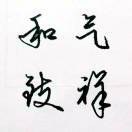 和气
致祥